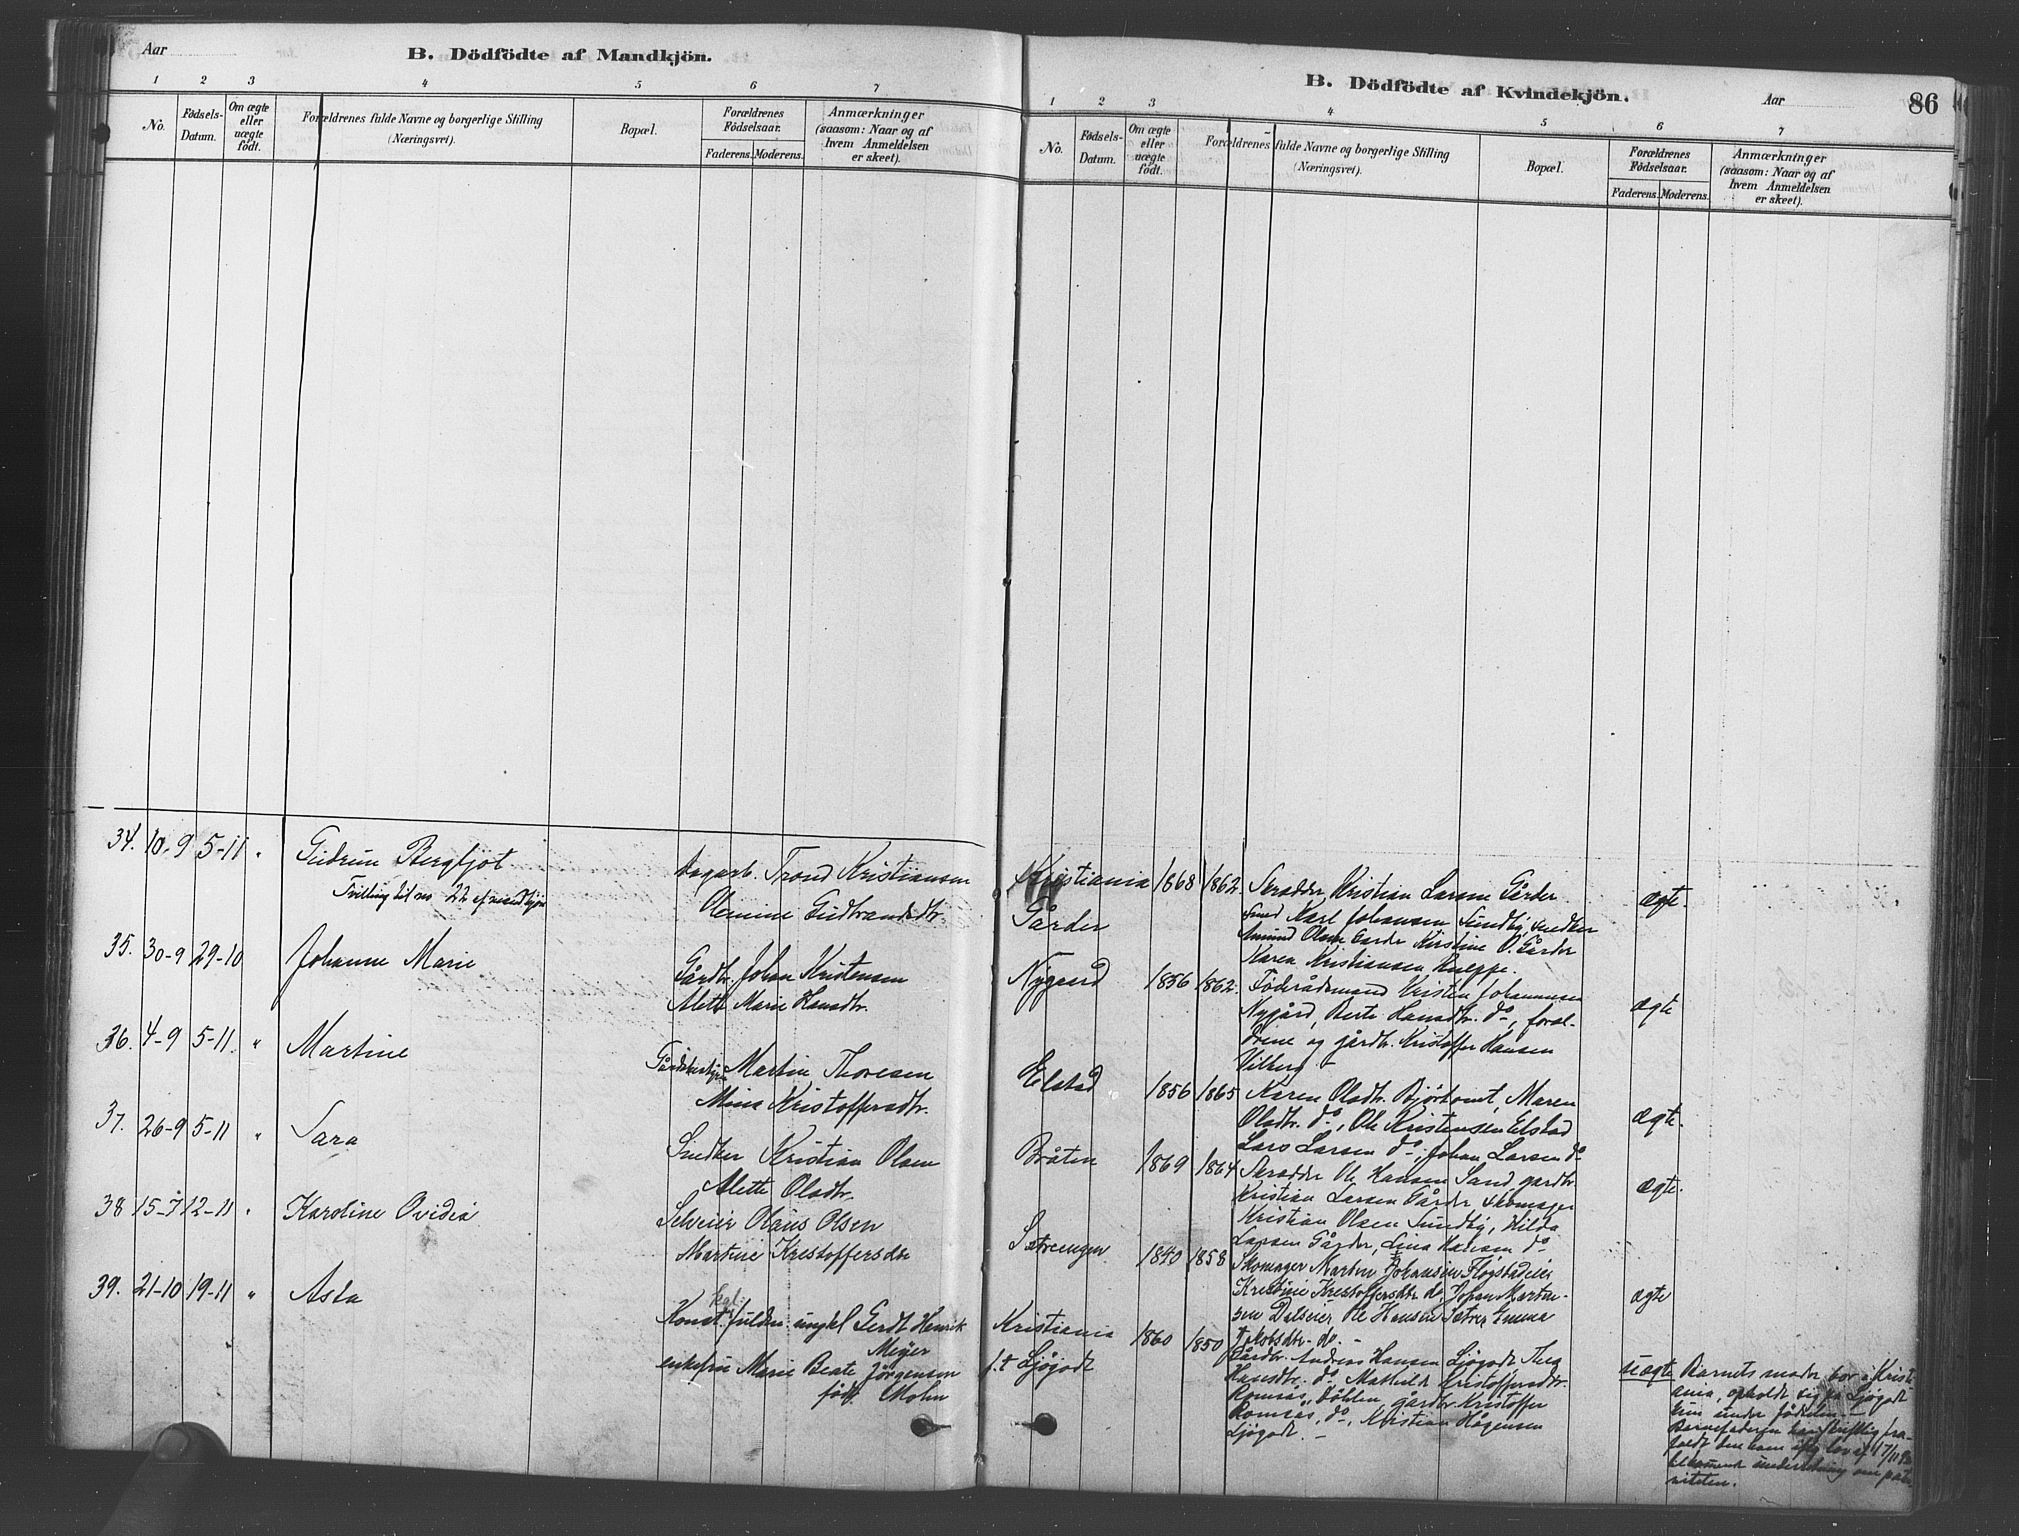 Aar
B. Dödfödte af Mandkjön.
1 2 3 4 5 6 7
No.
Födsels-
Datum.
Om ægte
eller
uægte
født.
Forældrenes fulde Navne og borgerlige Stilling
(Næringsvei).
Bopæl.
Forældrenes
Födselsaar.
Faderens. Moderens.
Anmærkninger
(saasom: Naar og af
hvem Anmeldelsen
er skeet).
B. Dödfödte af Kvindekjön.
Aar
86
1 2 3 4 5 6 7
No.
Födsels-
Datum.
Om ægte
eller
uægte
födt.
Forældrenes fulde Navne og borgerlige Stilling
(Næringsvei).
Bopæl.
Forældrenes
Födselsaar.
Faderens. Moderens.
Anmærkninger
(saasom: Naar og af
hvem Anmeldelsen
er skeet).
34. 10-9 5-11 " Gudrun Bergljot
Tvilling til no 22 af mandkjøn
Dagarb. Trond Kristiansen
Olemine Gudbrandsdtr.
Kristiania
Gårder
1868 1862
Skrædder Kristian Larsen Gårder
Karl Johansen Sundby, snedker
Amund Olsen Garder Kirstine O. Gårder
Karen Kristiansen
ægte.
35. 30-9 29-10 Johanne Marie
Gårdbr. Johan Kristensen
Aleth Marie Hansdtr.
Nygaard 1856 1862.
Føderådsmand Kristen Johannesen
Nygård, Berte Hansdtr. do, foræl-
drene og gårdbr. Kristoffer Hansen
Vilberg –
ægte
36. 4-9 5-11. " Martine
Martin Thoresen
Mina Kristoffersdtr.
Elstad 1856 1865
Karen Olsdtr. Bjørtomt, Maren
Olsdtr. do, Ole Kristensen Elstad
Lars Larsen do, Johan Larsen do
ægte.
37. 26-9 5-11 " Sara
Snedker Kristian Olsen
Alette Olsdtr.
Bråten 1869 1864
Skrædder Ole Hansen Sand, gardbr.
Kristian Larsen Gårder skomager
Kristian Olsen Sundby, Hilda
Larsen Gårder, Lina Hansen do
ægte.
38 15-7 12-11 " Karoline Ovidia
Selveier Olaus Olsen
Martine Kristoffersdtr
Sætrengen 1840 1858
Skomager Martin Johansen Flogstadeie
Kristine Kristoffersdtr do, Johan Martin-
sen Dalseie, Ole Hansen Sætre Emma
Jakobsdtr. do. –
ægte
39. 21-10 19-11 " Asta
kgl.
Konst. fuldm. ungkl Gerdt Henrik
Meyer
enkefru Marie Beate Jörgensen
född Mohn
Kristiania
f.t. Ljøgodt
1860 1850
Gårdbr. Andreas Hansen Ljøgodt Thea
Hansdtr. do, Mathilde Kristoffersdtr.
Romsås, Döhlen, gårdbr Kristoffer
Romsås, do, Kristian Hågensen
Ljøgodt. –
uægte
Barnets moder bor i Kristi-
ania, opholdt sig på Ljøgodt
kun under födselen –
Barnefaderen har skriftlig fra-
faldt den ham iflg lov af 17/11 90
tilkommende underretning om pater-
niteten.